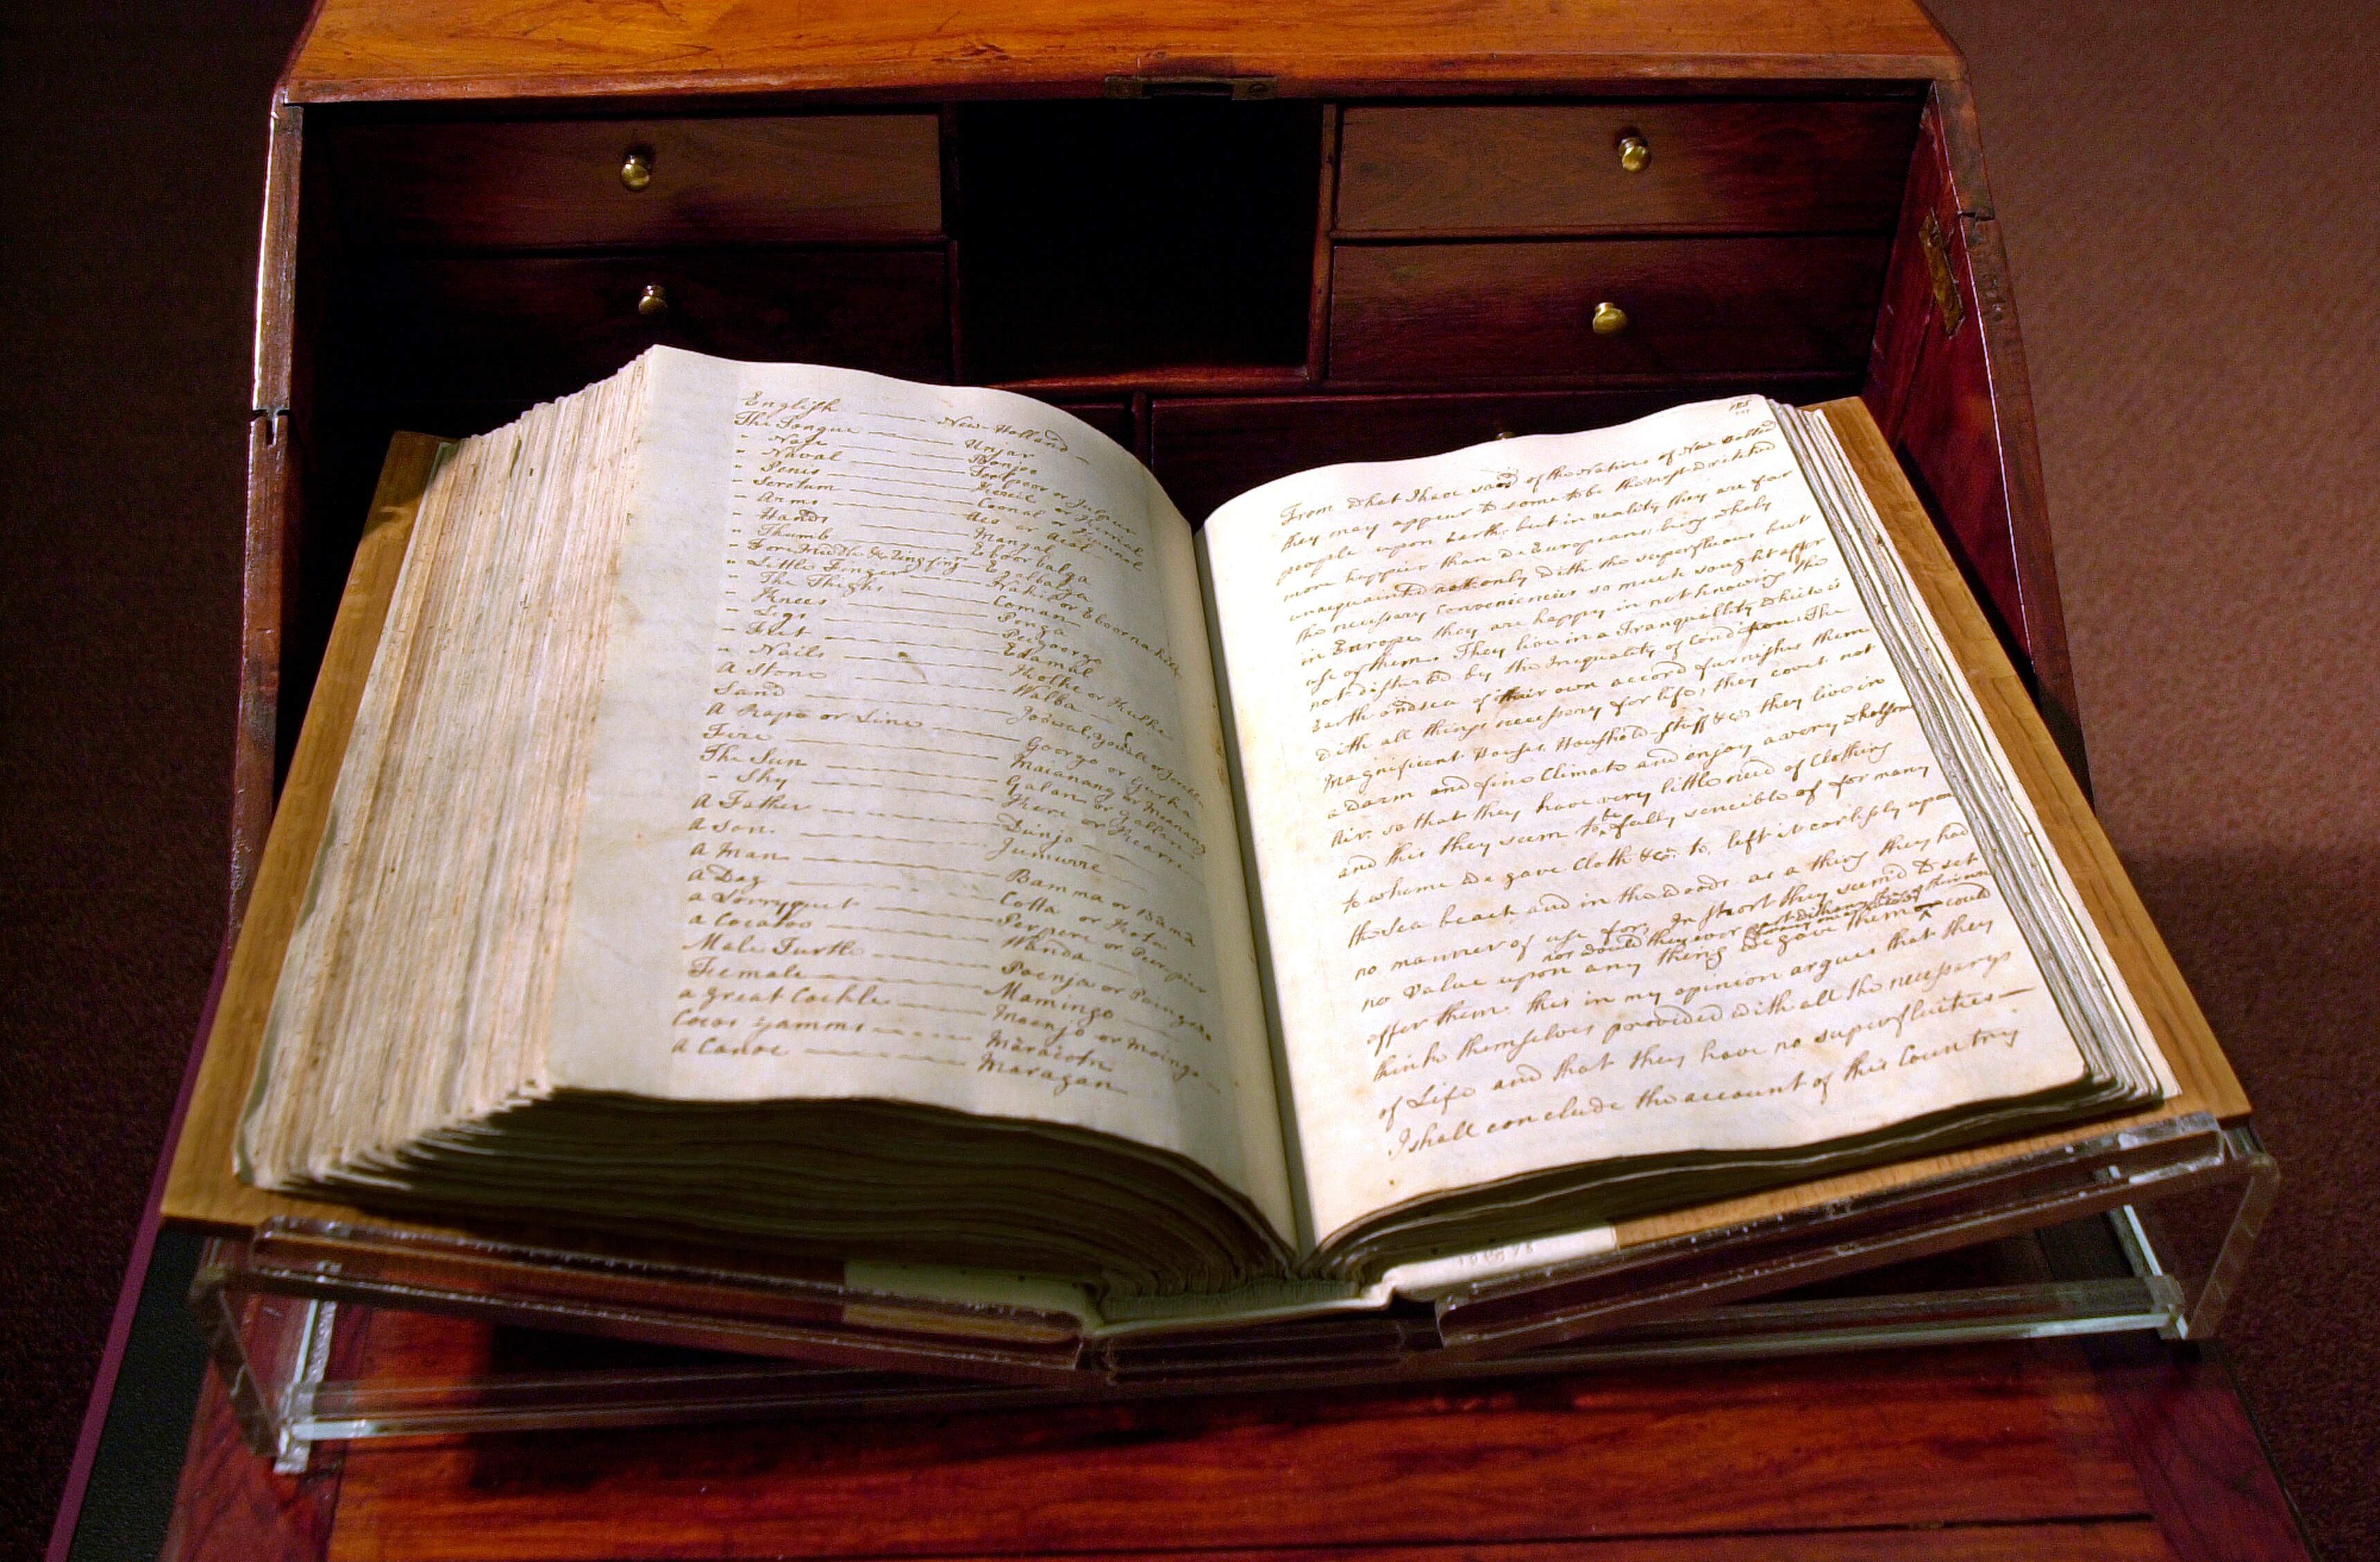 English — New-Holland —
The Tongue — Unjar
" Nose — Bonjoe
" Naval — Toolpoor or Julpur
" Penis — Kereil or Kerrial
" Scrotum — Coonal or Kunnal
" Arms — Aco or Acol
" Hands — Mangal
" Thumb — Eboorbalga
" Fore Middle & Ring fing — Egalbaiga
" Little Finger — Nakil or Eboornakill
" The Thighs — Coman
" Knees — Ponga
" Legs — Peegoorgo
" Feet — Edamal
" Nails — Kolke or Kulke
A Stone — Walba
Sand — Joowal Yowall or
A Rope or Line — Goorgo or Gurka
Fire — Maianang or Meanang
The Sun — Galan or Gallan
" Sky — Kere or Kearre
A Father — Dunjo
A Son — Jumurre
A Man — Bamma or Bama
A Dog — Cotta or Kota
a Lorryquet — Perpere or Pierpier
a Cocatoo — Wanda
Male Turtle — Poenja or Poinga
Female — Mamingo
a great Cockle — Moenjo or Moingo
Cocos Yamms — Maracotu
a Canoe — Maragan
From what I have said of the Natives of New Holland
they may appear to some to be the most wretched
people upon Earth, but in reality they are far
more happier than we Europeans; being wholy
unacquainted not only with the superfluous but
the necessary conveniencies so much sought after
in Europe, they are happy in not knowing the
use of them. They live in a Tranquillity which is
not disturb'd by the Inequality of Condition: The
Earth and sea of their own accord furnishes them
with all things necessary for life; they covet not
Magnificent Houses, Houshold-stuff &ca they live in
a warm and fine Climate and enjoy a very wholsome
Air. so that they have very little need of Clothing
and this they seem to be fully sencible of for many
to whome we gave Cloth &ca to, left it carlessly upon
the Sea beach and in the woods as a thing they had
no manner of use for. In short they seem'd to set
no Value upon any thing we gave them
nor would they ever part with any thing of their own
could
offer them this in my opinion argues that they
think themselves provided with all the necessarys
of Life and that they have no superfluities —
I shall conclude the account of this Country